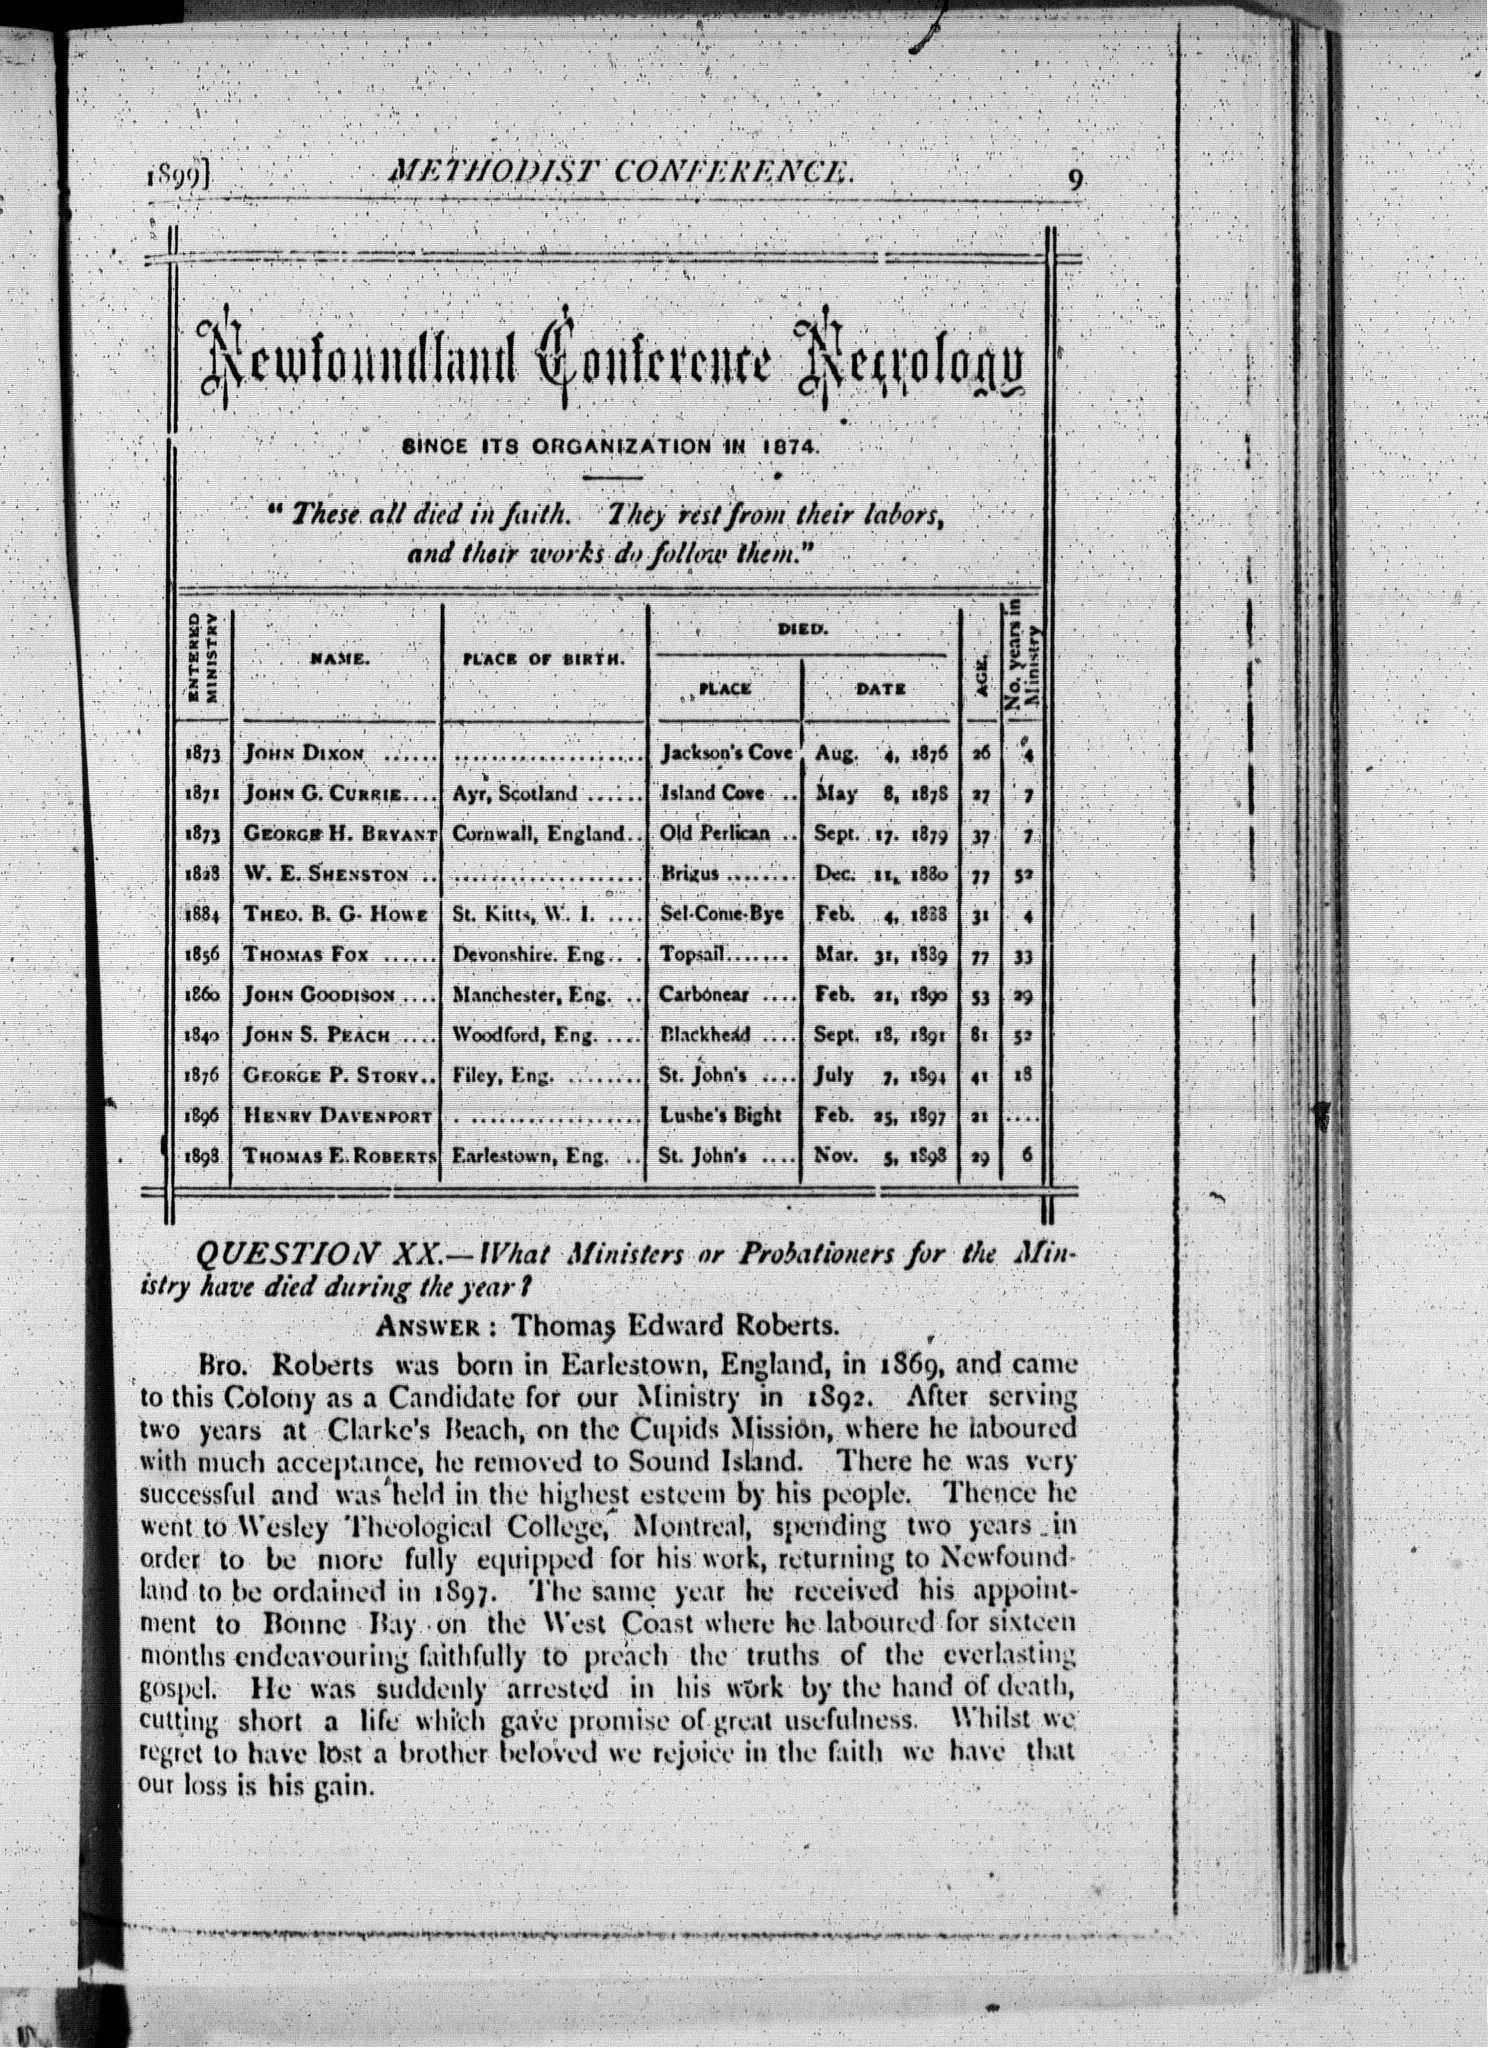 1899] METHODIST CONFERENCE. 9
Newfoundland Conference Necrology
SINCE ITS ORGANIZATION IN 1874.
“ These all died in faith. They rest from their labors,
and their works do follow them.”
ENTERED MINISTRY NAME. PLACE OF BIRTH. DIED. PLACE DATE AGE. No. years in Ministry
1873 JOHN DIXON ...... .................... Jackson's Cove Aug. 4, 1876 26 4
1871 JOHN G. CURRIE.... Ayr, Scotland ...... Island Cove .. May 8, 1878 27 7
1873 GEORGE H. BRYANT Cornwall, England.. Old Perlican .. Sept. 17. 1879 37 7
1828 W. E. SHENSTON .. .................... Brigus ....... Dec. 11, 1880 77 52
1884 THEO. B. G. HOWE St. Kitts, W. I. .... Sel-Come-Bye Feb. 4, 1888 31 4
1856 THOMAS FOX ...... Devonshire. Eng.. . Topsail....... Mar. 31, 1889 77 33
1860 JOHN GOODISON .... Manchester, Eng. .. Carbonear .... Feb. 21, 1890 53 29
1840 JOHN S. PEACH .... Woodford, Eng. .... Blackhead .... Sept. 18, 1891 81 52
1876 GEORGE P. STORY.. Filey, Eng. ........ St. John's .... July 7, 1894 41 18
1896 HENRY DAVENPORT . .................. Lushe's Bight Feb. 25, 1897 21 ....
1898 THOMAS E. ROBERTS Earlestown, Eng. .. St. John's .... Nov. 5, 1898 29 6
QUESTION XX.—What Ministers or Probationers for the Min-
istry have died during the year?
ANSWER : Thomas Edward Roberts.
Bro. Roberts was born in Earlestown, England, in 1869, and came
to this Colony as a Candidate for our Ministry in 1892. After serving
two years at Clarke's Beach, on the Cupids Mission, where he laboured
with much acceptance, he removed to Sound Island. There he was very
successful and was held in the highest esteem by his people. Thence he
went to Wesley Theological College, Montreal, spending two years in
order to be more fully equipped for his work, returning to Newfound-
land to be ordained in 1897. The same year he received his appoint-
ment to Bonne Bay on the West Coast where he laboured for sixteen
months endeavouring faithfully to preach the truths of the everlasting
gospel. He was suddenly arrested in his work by the hand of death,
cutting short a life which gave promise of great usefulness. Whilst we
regret to have lost a brother beloved we rejoice in the faith we have that
our loss is his gain.